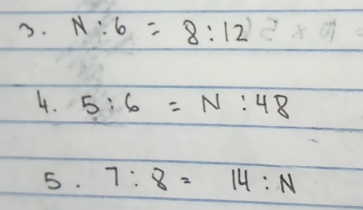 3. N:6 = 8:12
4. 5:6 = N:48
5. 7:8 = 14:N